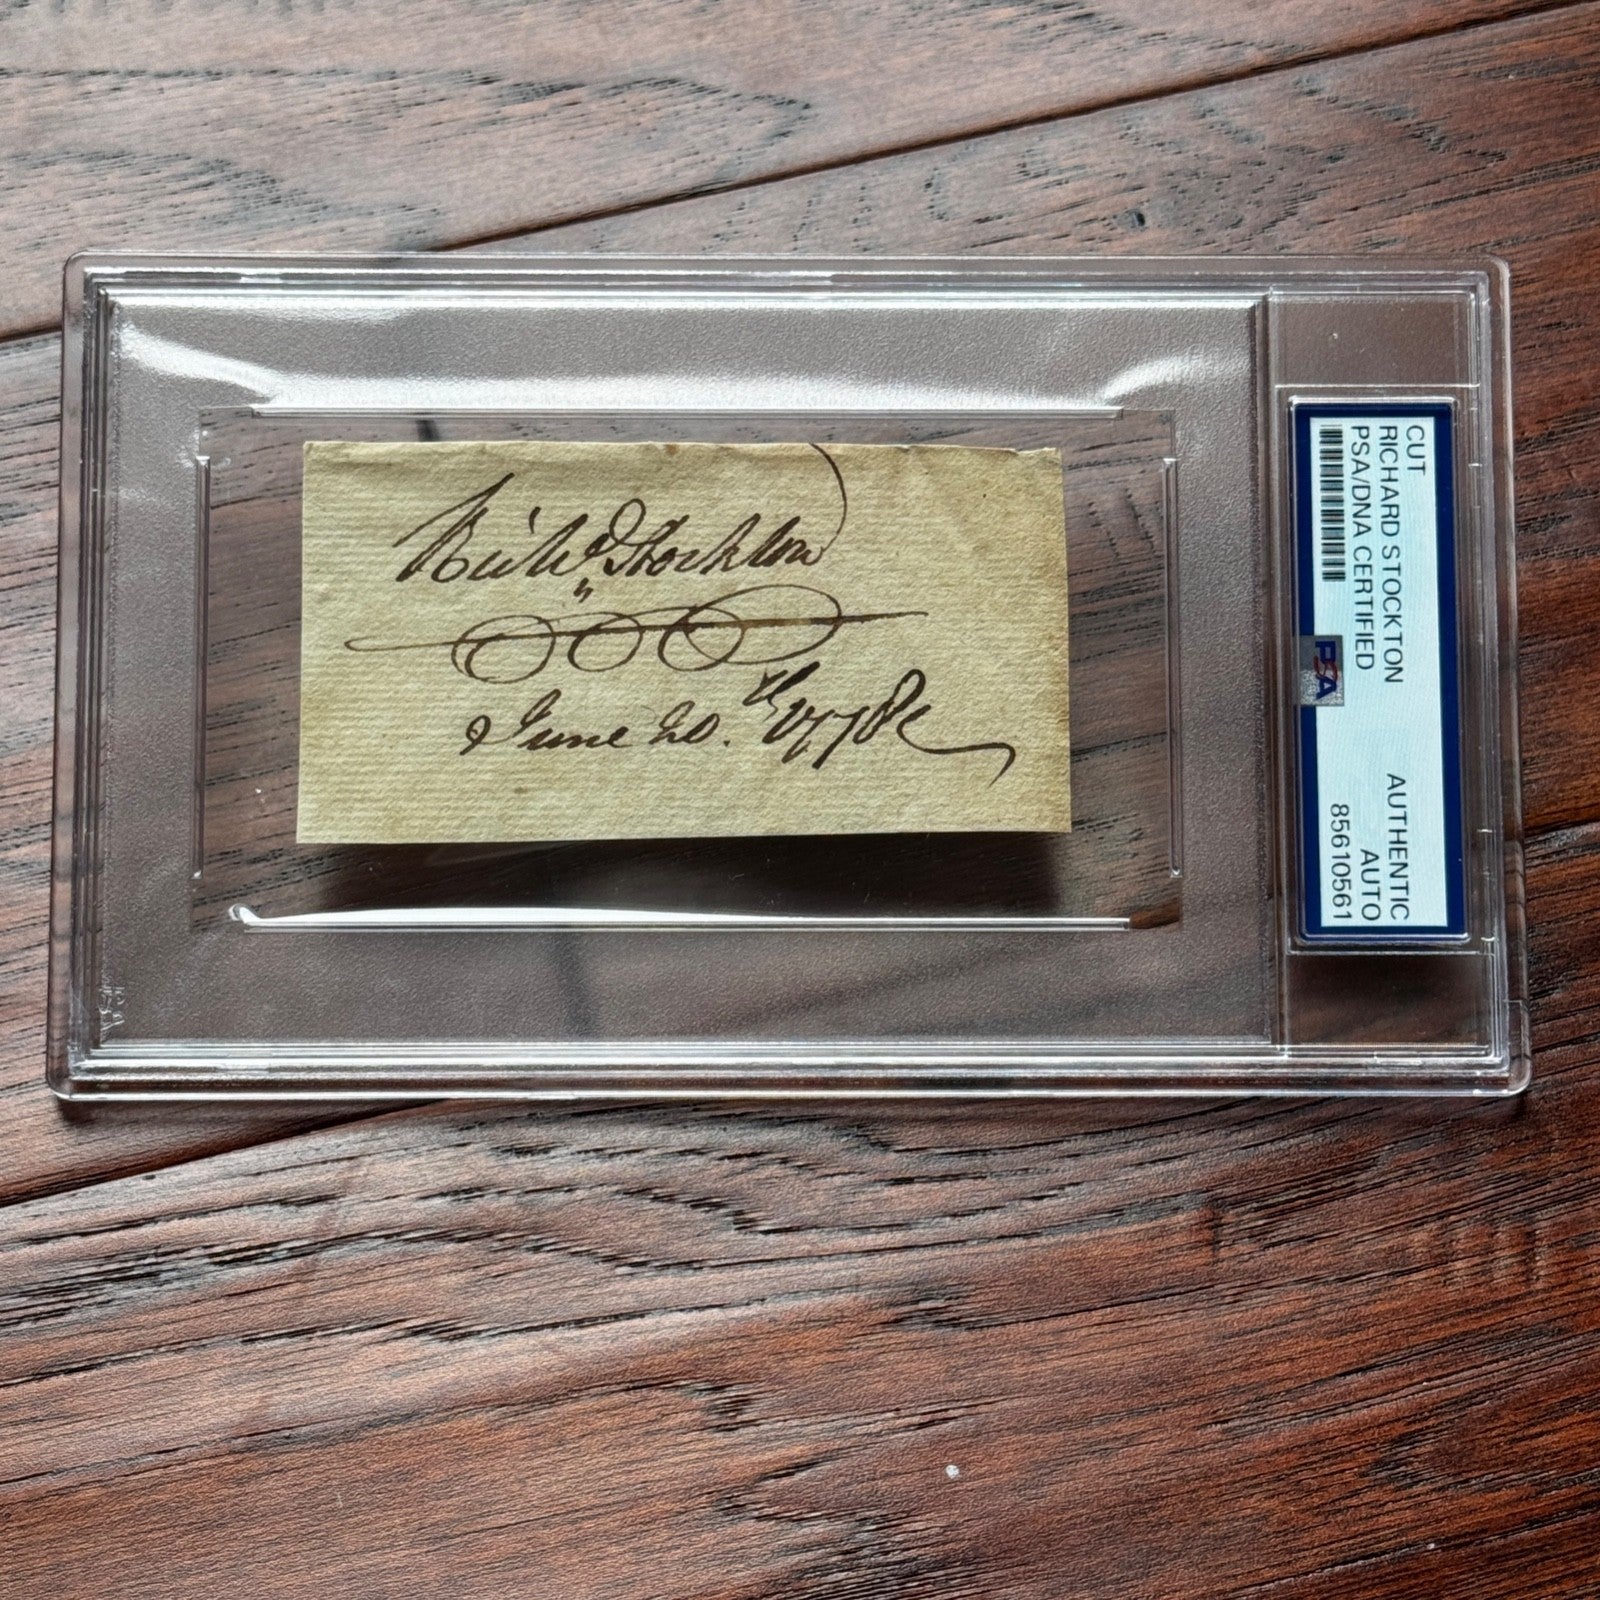 Rich.d Stockton
June 20.th
CUT
RICHARD STOCKTON
PSA/DNA CERTIFIED
AUTHENTIC
AUTO
85610561
PSA